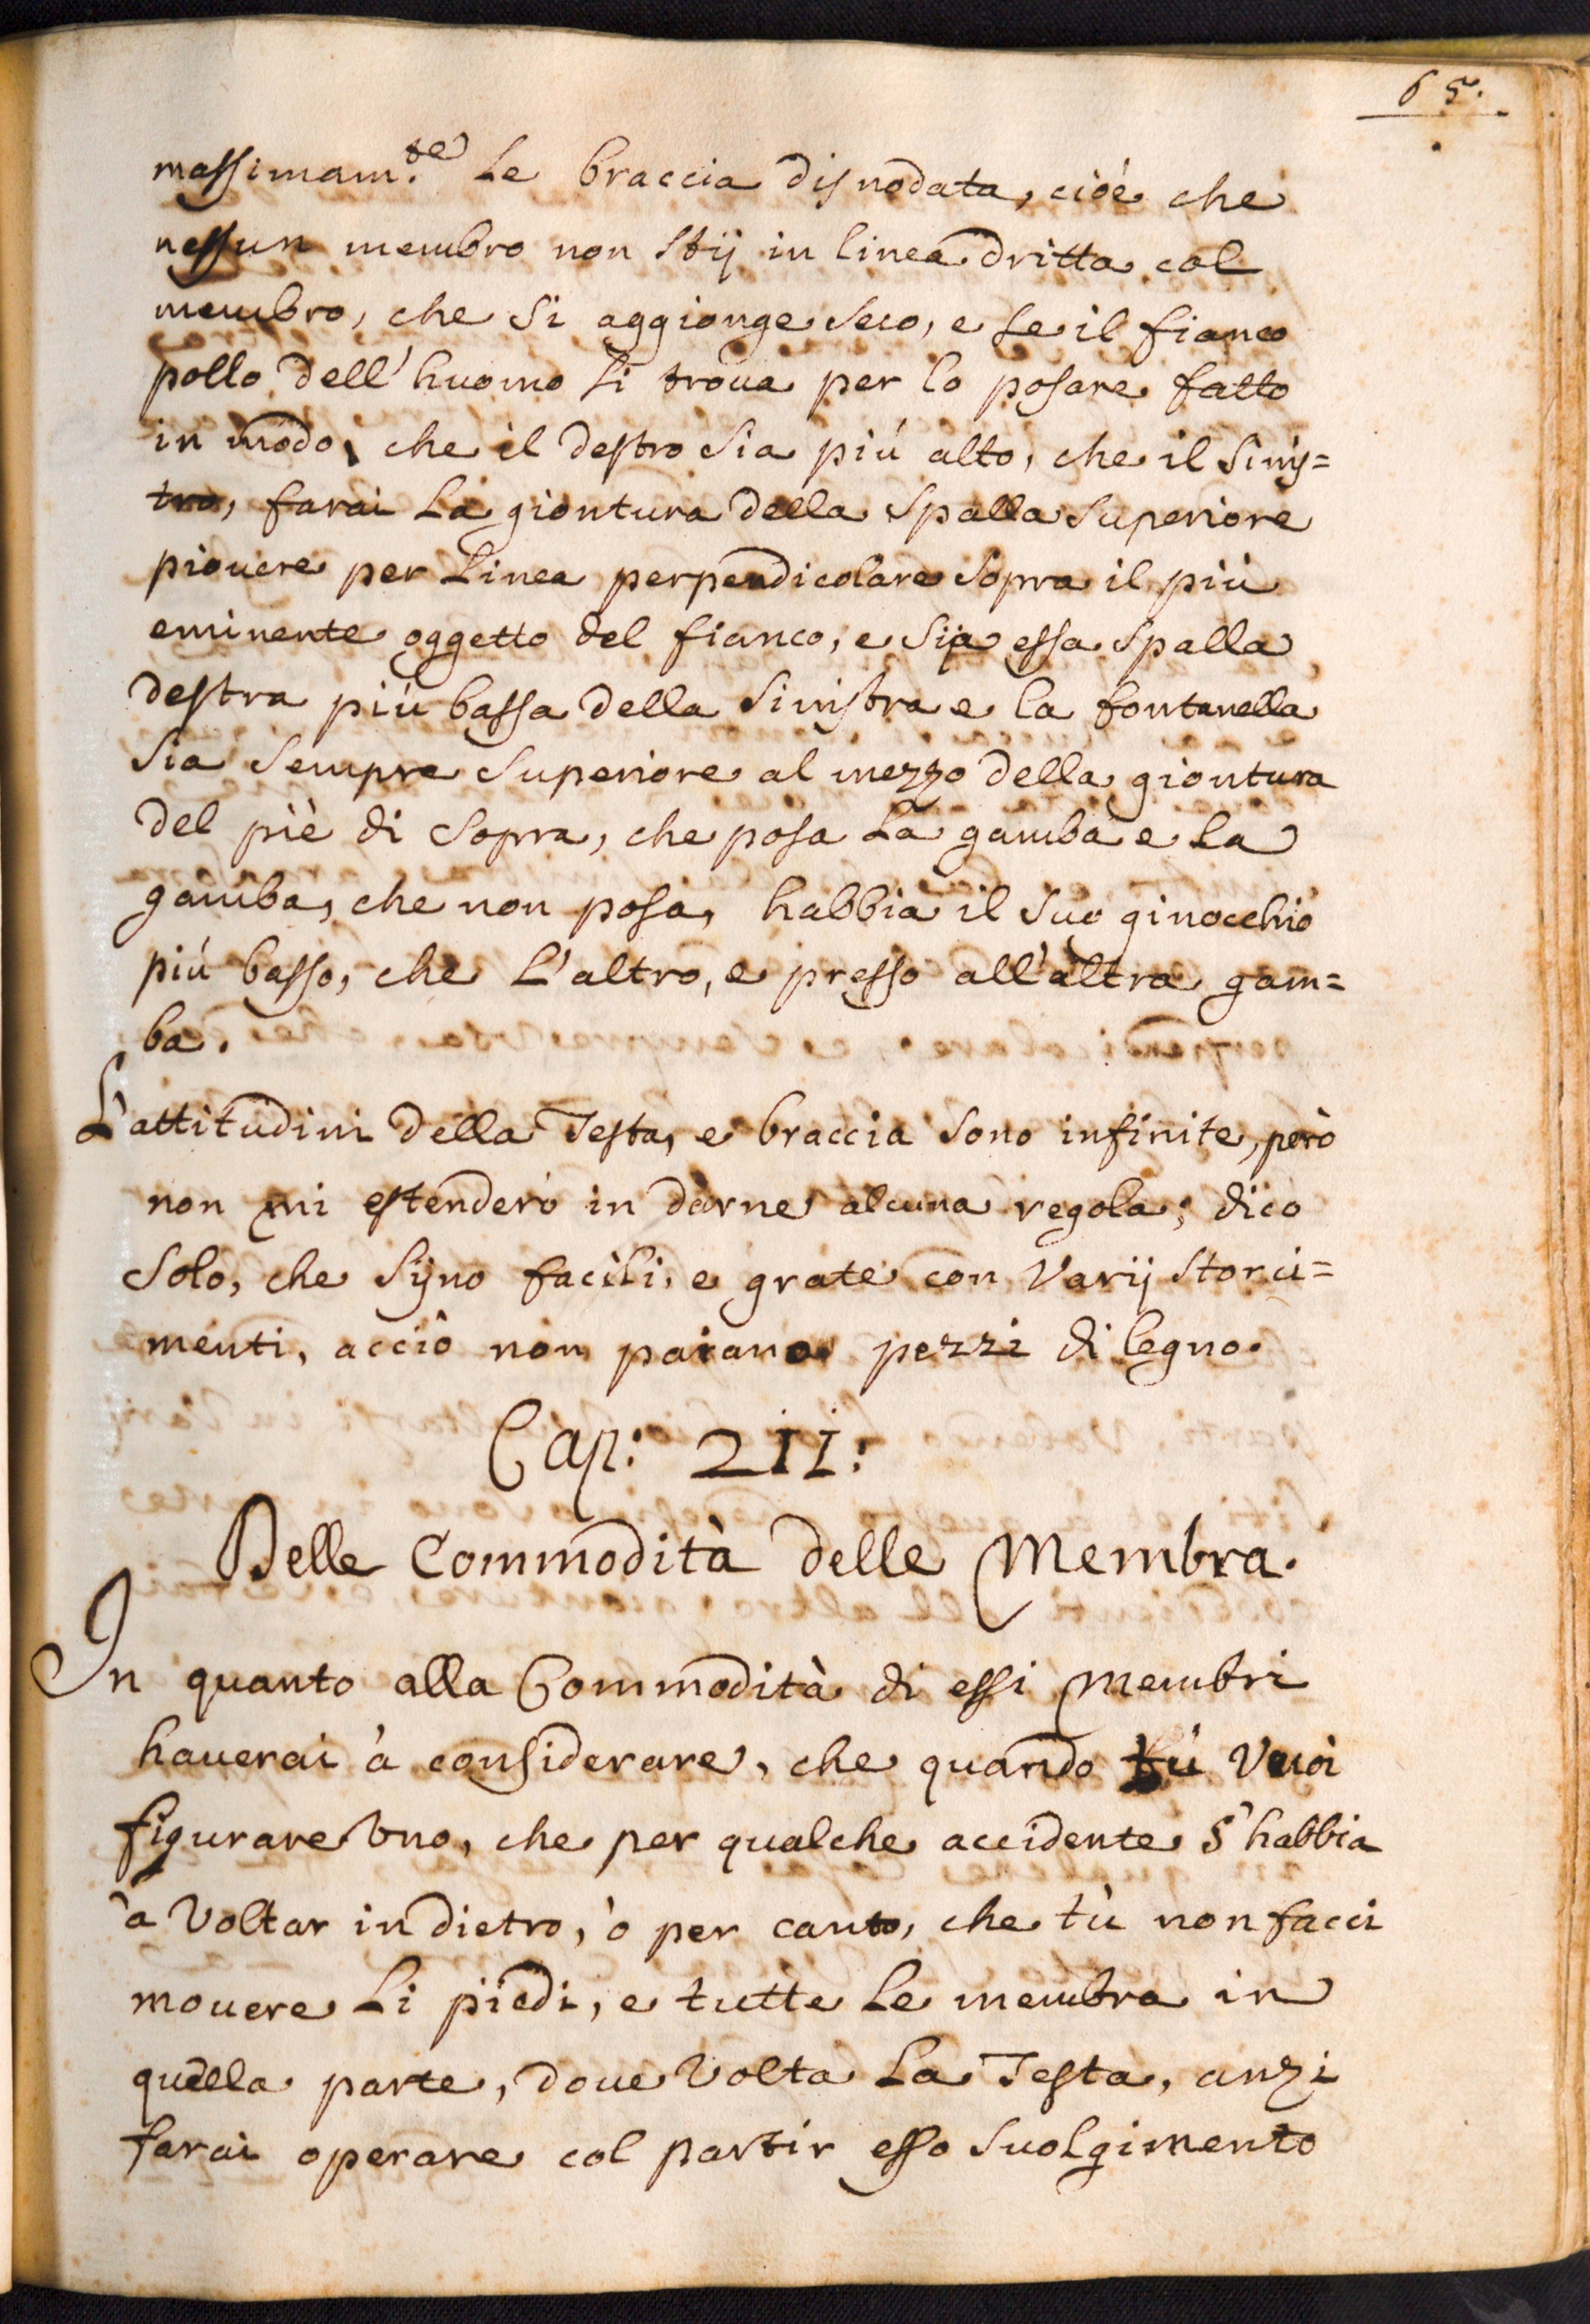 65.
massimam.te Le braccia disnodata, cioè che
nessun membro non stij in linea dritta col
membro, che si aggionge seco, e se il fianco
pollo dell'huomo si troua per lo posare fatto
in modo, che il destro sia più alto, che il sinis=
tro, farai La giontura della spalla superiore
piouere per Linea perpendicolare sopra il più
eminente oggetto del fianco, e sia essa spalla
destra più bassa della sinistra e la fontanella
sia sempre superiore al mezzo della giontura
del piè di sopra, che posa La gamba e La
gamba, che non posa, habbia il suo ginocchio
più basso, che L'altro, e presso all'altra gam=
ba.
L'attitudini della Testa, e braccia sono infinite, però
non mi estenderò in darne alcuna regola; dico
solo, che sijno facili, e grate con varij storci=
menti, acciò non paiano pezzi di legno.
Cap: 211:
Delle Commodità delle Membra.
In quanto alla Commodità di essi Membri
hauerai à considerare, che quando tù vuoi
figurare vno, che per qualche accidente s'habbia
à voltar indietro, ò per canto, che tù non facci
mouere Li piedi, e tutte Le membra in
quella parte, doue volta La Testa, anzi
farai operare col partir esso suolgimento